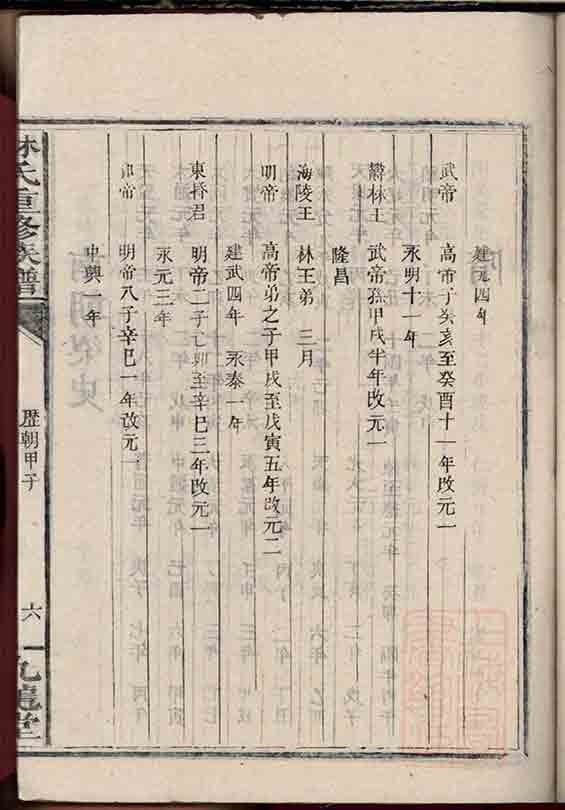 建元四年
武帝 高帝子癸亥至癸酉十一年改元一
永明十一年
欝林王 武帝孫甲戌半年改元一
隆昌
海陵王 林王弟 三月
明帝 高帝弟之子甲戌至戊寅五年改元二
建武四年 永泰一年
東昏君 明帝二子己卯至辛巳三年改元一
永元三年
和帝 明帝八子辛巳一年改元一
中興一年
林氏重修族譜
歷朝甲子
六
九龍堂